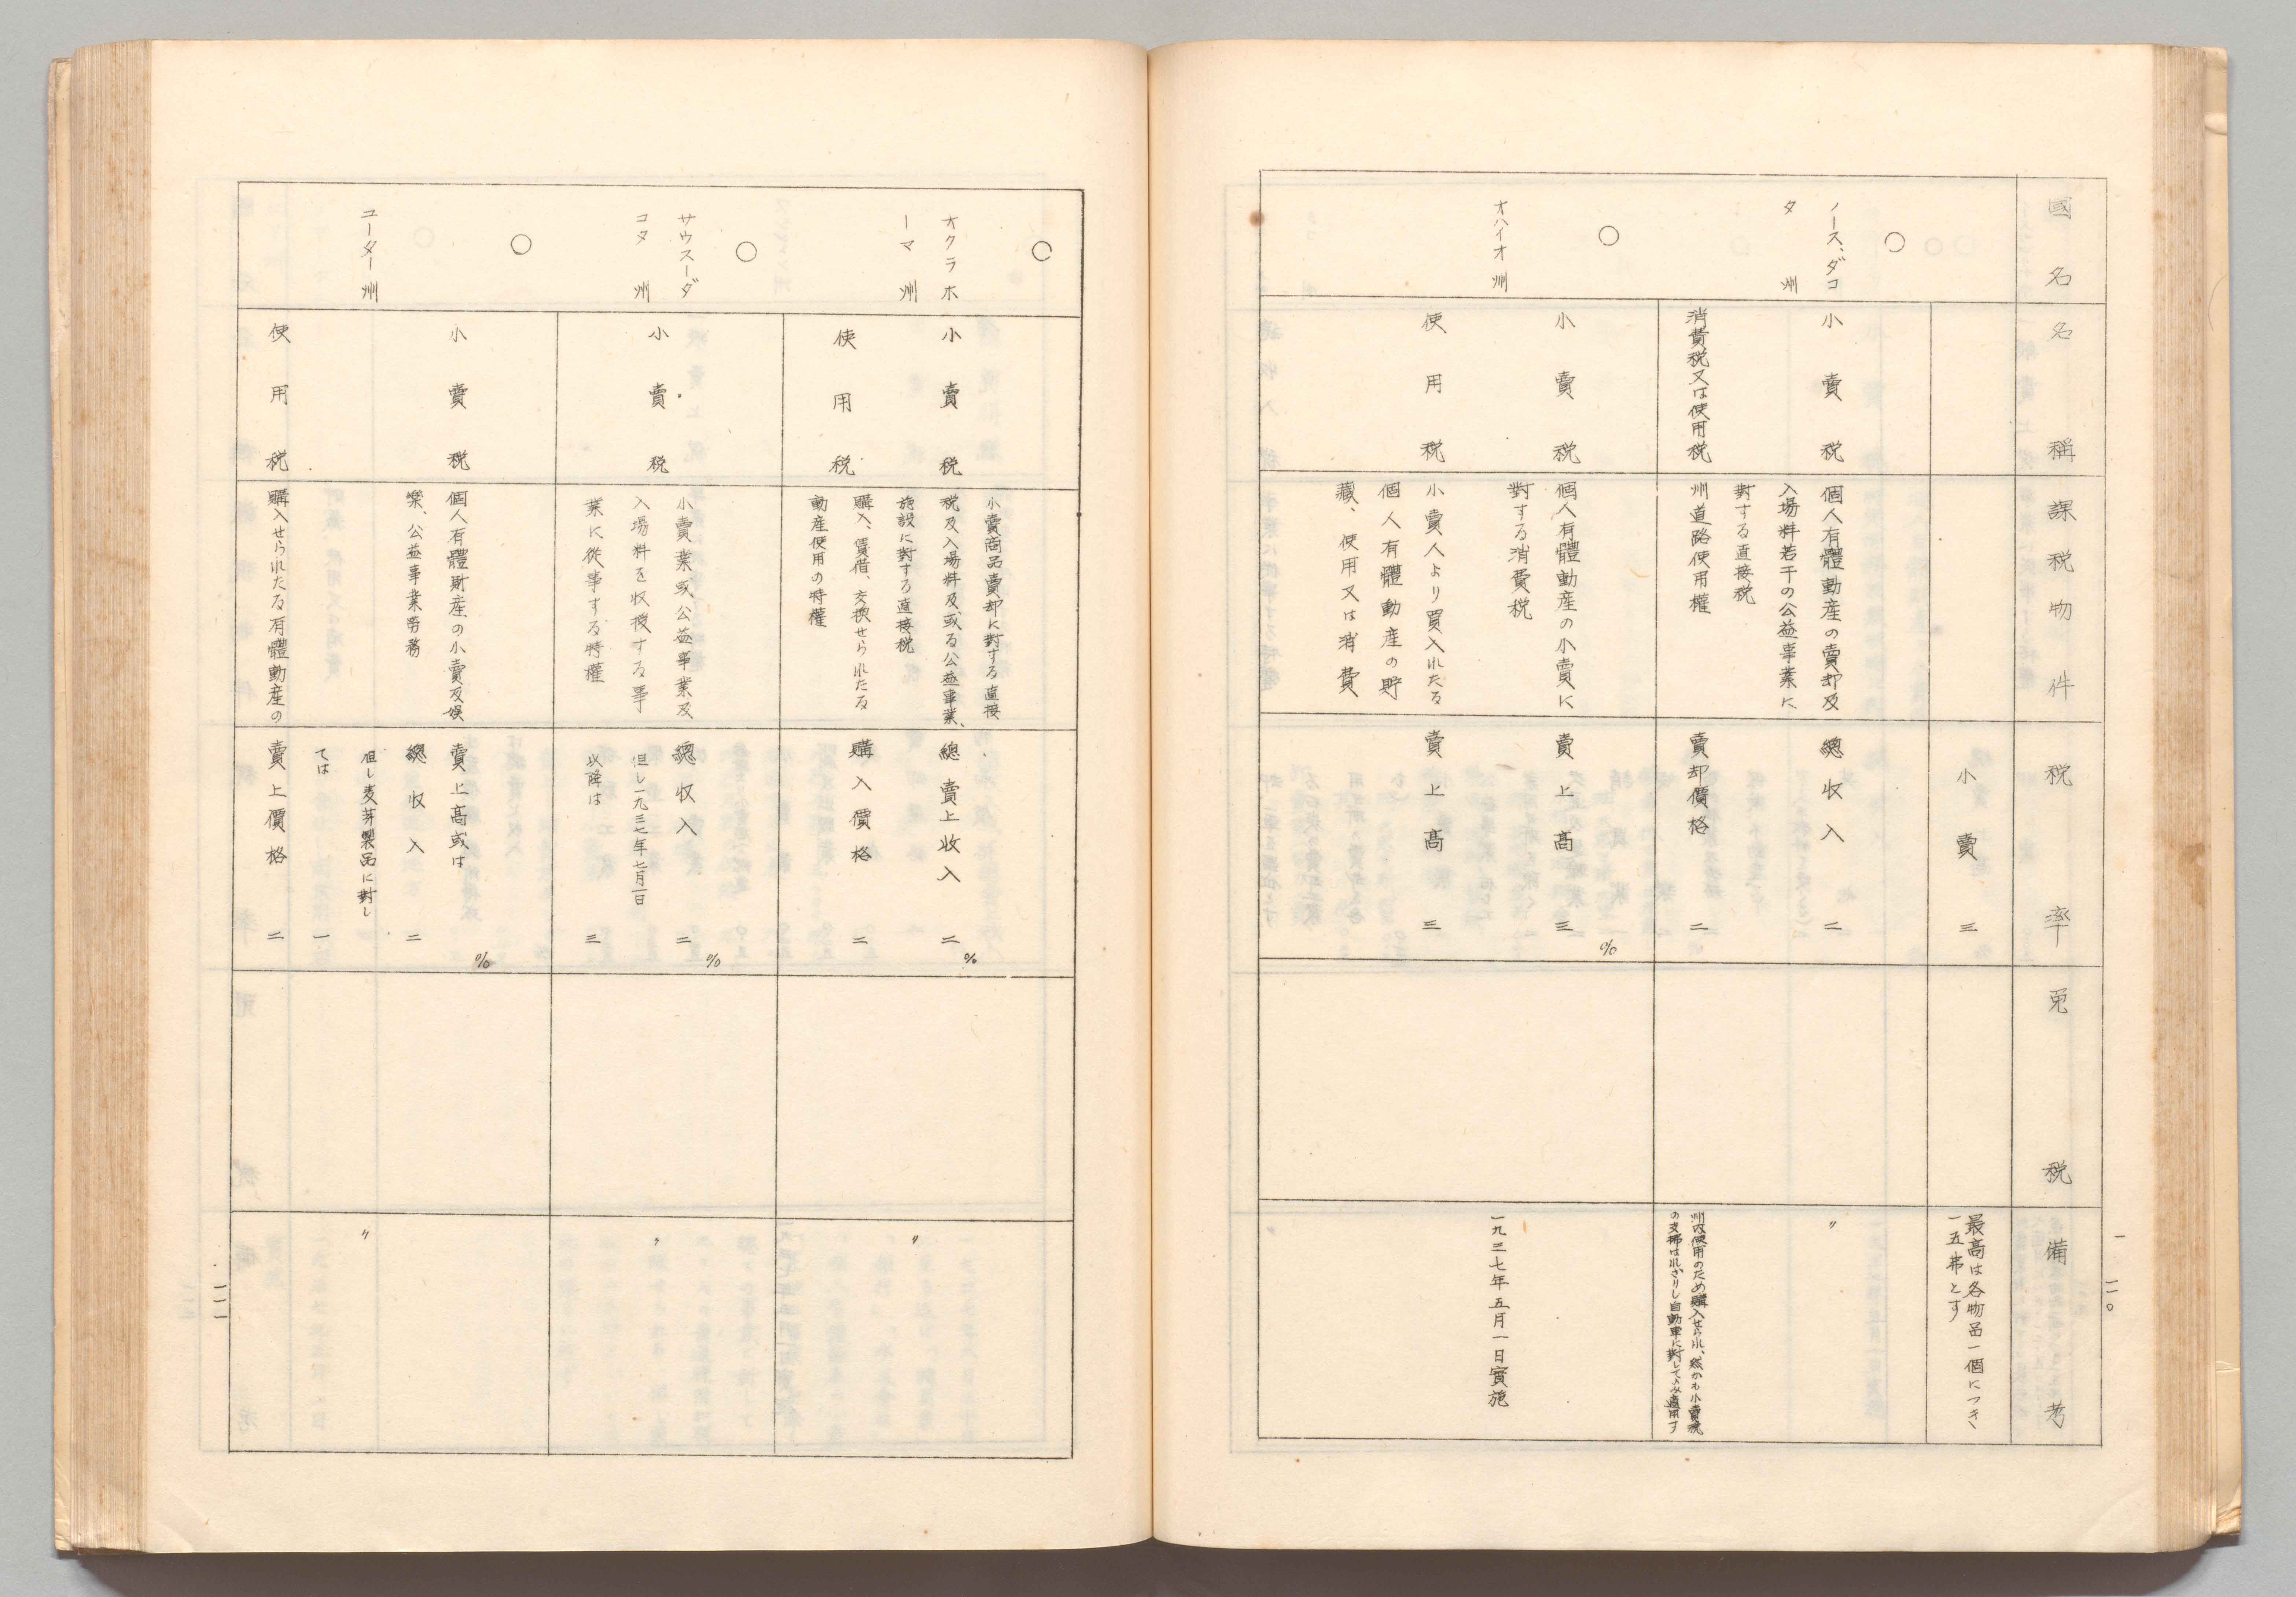 國名
名稱
課税物件
税率
免税
備考
小賣 三
最高は各物品一個につき
一五弗とす
○
ノース、ダコ
タ州
小賣税
個人有體動産の賣却及
入場料若干の公益事業に
對する直接税
總收入 二
〃
消費税又は使用税
州道路使用權
賣却價格 二
州内使用のため購入せられ、然かも小賣税
の支拂はれざりし自動車に對してのみ適用す
○
オハイオ州
小賣税
個人有體動産の小賣に
對する消費税
賣上高 三%
使用税
小賣人より買入れたる
個人有體動産の貯
藏、使用又は消費
賣上高 三
一九三七年五月一日實施
一二〇
○
オクラホ
ーマ州
小賣税
小賣商品賣却に對する直接
税及入場料及或る公益事業、
施設に對する直接税
總賣上收入 二%
使用税
購入、賃借、交換せられたる
動産使用の特權
購入價格 二
〃
○
サウスーダ
コタ州
小賣税
小賣業或公益事業及
入場料を收授する事
業に從事する特權
總收入 二%
但し一九三七年七月一日
以降は 三
〃
○
ユーター州
小賣税
個人有體財産の小賣及娯
樂、公益事業勞務
賣上高或は
總收入 二%
但し麦芽製品に對し
ては 一
使用税
購入せられたる有體動産の
賣上價格 二
〃
一二一